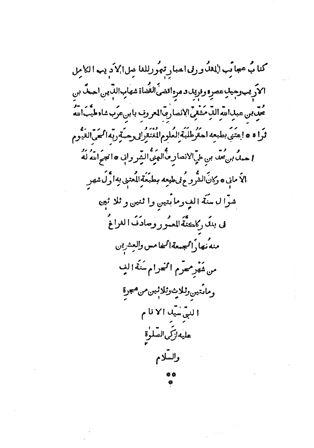 كتاب عجائب المقدور في اخبار تيمور للفاضل الاديب الكامل
الاريب وحيد عصره وفريد دهره اقضى القضاة شهاب الدين احمد بن
محمد بن عبد الله الدمشقي الانصاري المعروف بابن عرب شاه طيب الله
ثراه * اعتنى بطبعه احقر طلبة العلوم المفتقر الى رحمة ربه الحي القيوم
احمد بن محمد بن علي الانصاري اليمني الشرواني * انجح الله له
الاماني * وكان الشروع في طبعه بمطبعة المعتني به اول شهر
شوال سنة الف ومائتين واثنين وثلاثين
في بندر كلكتة المعمور وصادف الفراغ
منه نهار الجمعة الخامس والعشرين
من شهر محرم الحرام سنة الف
ومائتين وثلاث وثلاثين من هجرة
النبي سيد الانام
عليه ازكى الصلوة
والسلام